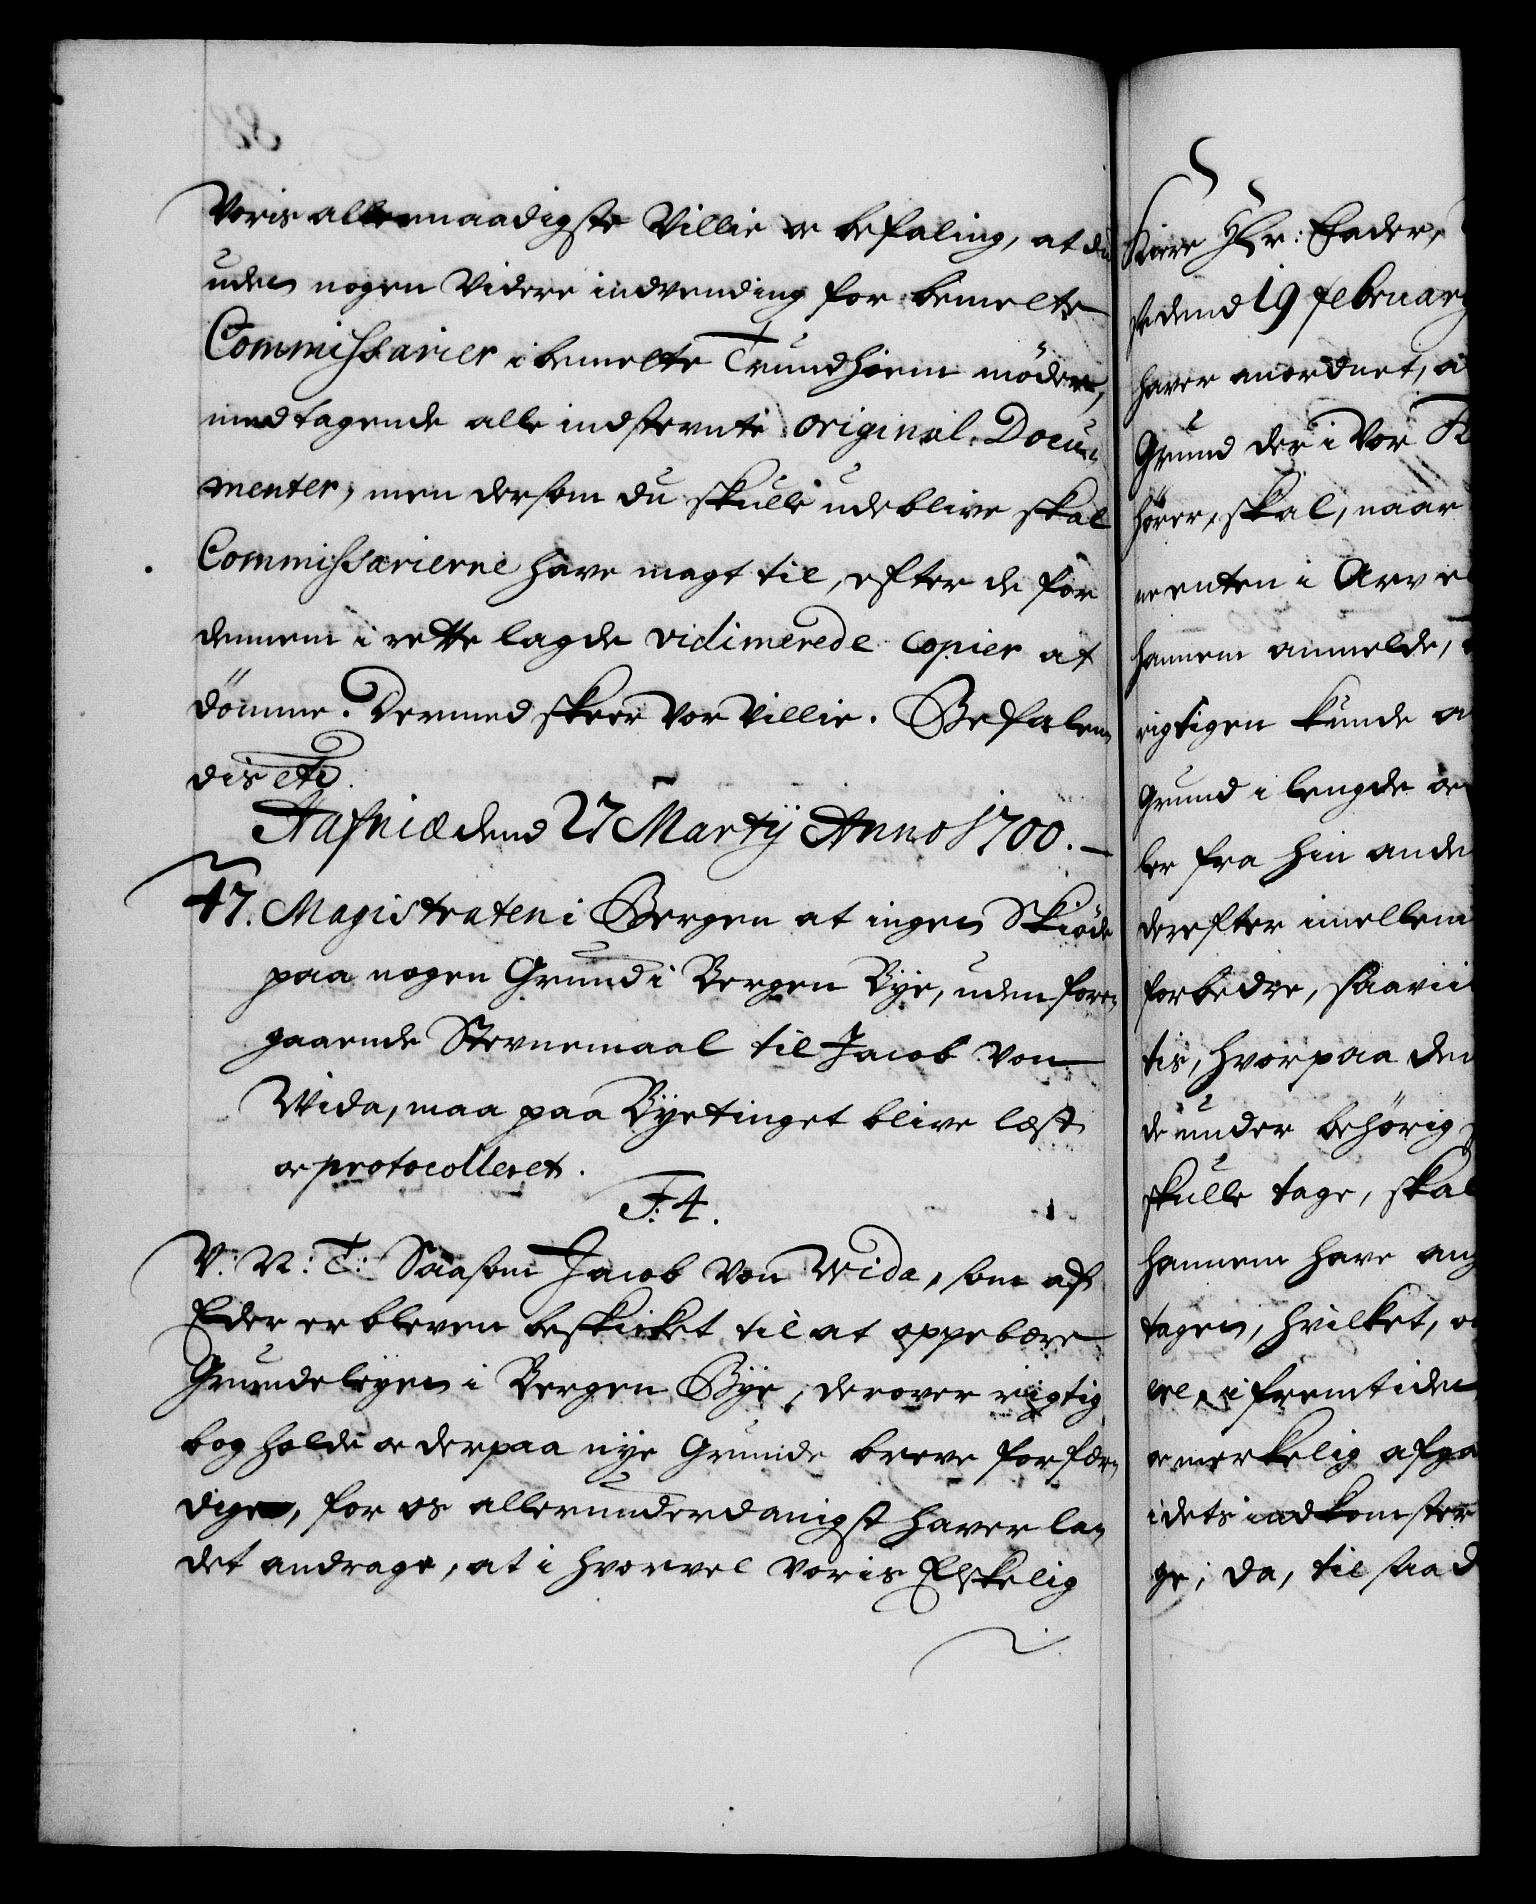 Voris allernaadigste Villie oc befaling, at du
uden nogen Videre indvending for bemelte
Commissarier i bemelte Trundhiem möder,
medtagende alle indstevnte original Docu-
menter, men dersom du skulle udeblive skal
Commissarierne have magt til, efter de for
dennem i rette lagde vidimerede copier at
dömme. Dermed skeer Vor Villie. Befalen-
dis etc.
Hafniæ dend 27 Martij Anno 1700.
47. Magistraten i Bergen at ingen Skiöde
paa nogen Grund i Bergen Bye, uden fore-
gaaende Stevnemaal til Jacob Von
Wida, maa paa Byetinget blive læst
oc protocolleret.
F: 4.
V: N: T: Saasom Jacob Von Wida, som af
Eder er bleven beskicket til at oppebære
Grundeleyen i Bergen Bye, derover rigtig
bog holde oc derpaa nye Grunde breve forfær-
dige, for os allerunderdanigst haver la-
det andrage, at i hvorvel Voris Elskelig
Kiere Hr: Fader,
dend 19 februarij
haver anordnet, a
Grund der i Vor K
hörer, skal, naar
enten i Arv e
hannem anmelde,
rigtigen kunde a
Grund i lengde oc
ler fra hin ande
derefter imellem
forbedre, saavii
tis, hvorpaa den
de under behörig
skulle tage, skal
hannem have ang
tagen, hvilket, o
vel, i fremtiden
oc merkelig afga
i dets indkomster
ge; da, til saad